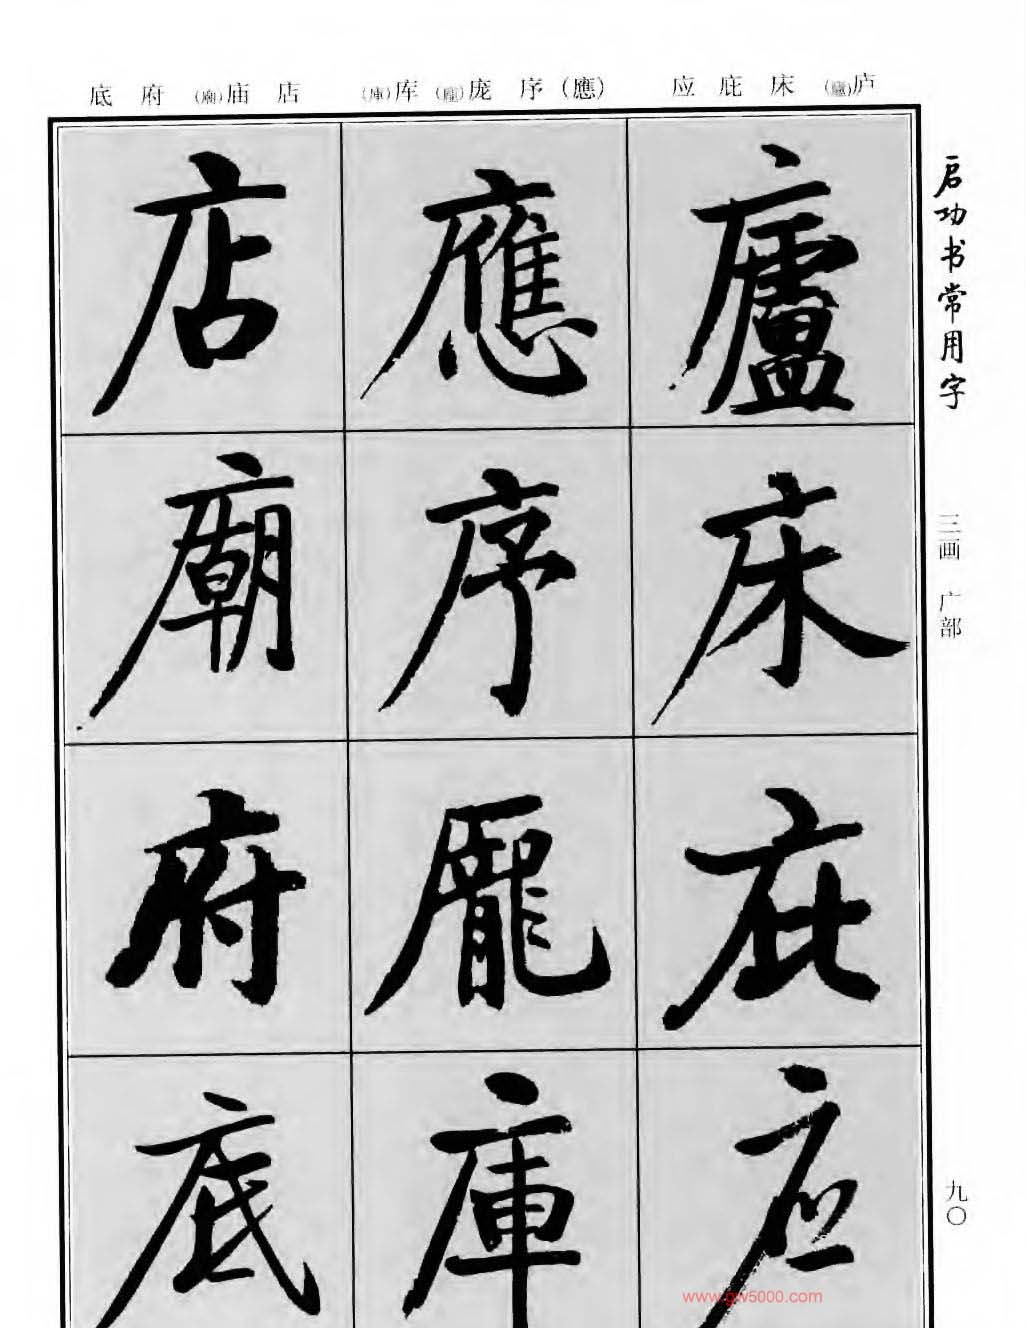 庐(廬) 床 庇 应
(應) 序 庞(龐) 库(庫)
店 庙(廟) 府 底
启功书常用字
三画 广部
九〇
廬
床
庇
应
應
序
龐
庫
店
廟
府
底
www.gw5000.com